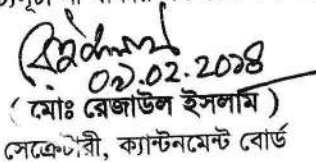 ০৯.০২.২০১৪
( মোঃ রেজাউল ইসলাম )
সেক্রেটারী, ক্যান্টনমেন্ট বোর্ড